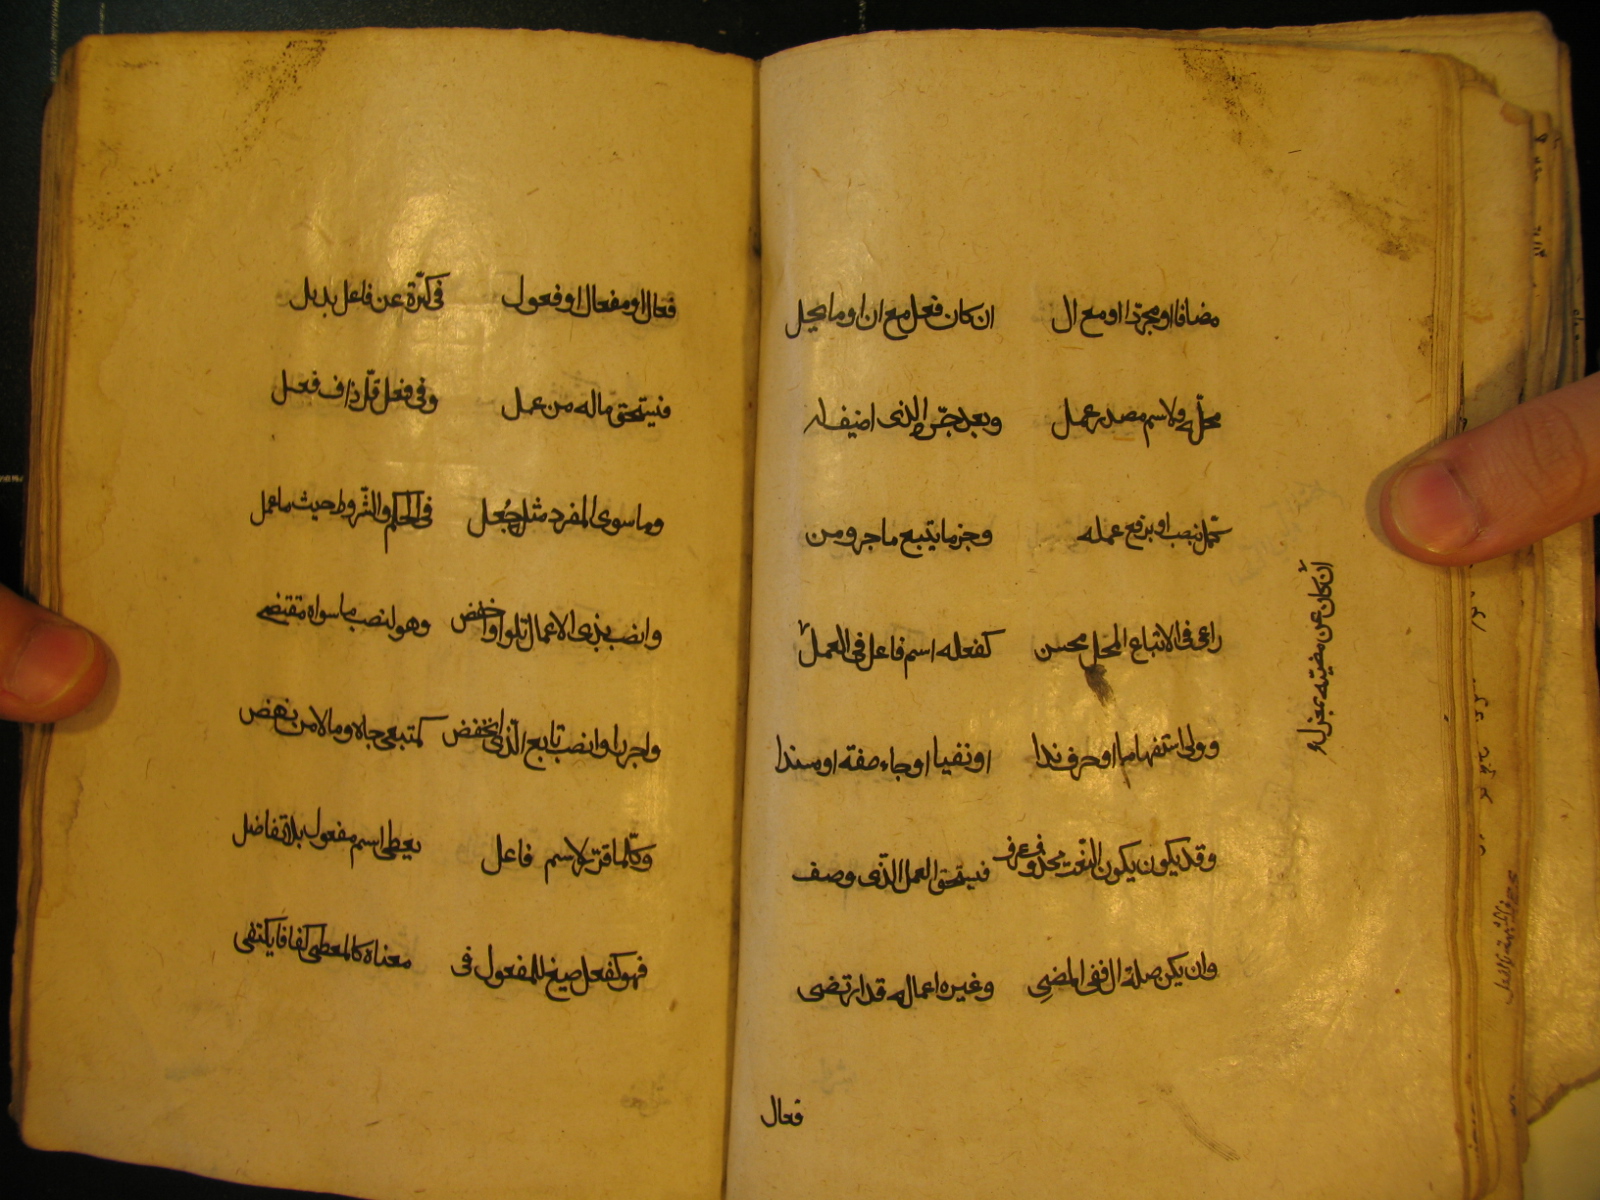 مضافا او مجرّدا او مع ال ان كان فعل مع ان او ما يحل
محلّه ولاسم مصدر عمل وبعد جرّه الذى اضيف له
كمّل بنصب او برفع عمله وجز ما يتبع ما جر ومن
راعى فى الاتباع المحل محسن كفعله اسم فاعل فى العمل
ان كان عن مضيّه بمعزل
وولى استفهاما او حرف ندا او نفيا او جاء صفة او مسندا
وقد يكون يكون النعت محذوف عرف فيستحق العمل الذّى وصف
وان يكن صلة ال ففى المضى وغيره اعماله قد ارتضى
فعال
فعال او مفعال او فعول فى كثرة عن فاعل بديل
فيستحق ماله من عمل وفى فعل قلّ ذا وفعل
وما سوى المفرد مثله جُعل فى الحكم والشّروط حيث ما عمل
وانصب بذى الاعمال تلوا واخفض وهو لنصب ما سواه مقتضى
واجرر او انصب تابع الّذى انخفض كمتبعى جاه ومالا من نهض
وكلّما قرّر لاسم فاعل يعطى اسم مفعول بلا تفاضل
فهو كفعل صيغ للمفعول فى معناه كالمعطى كفافا يكتفى